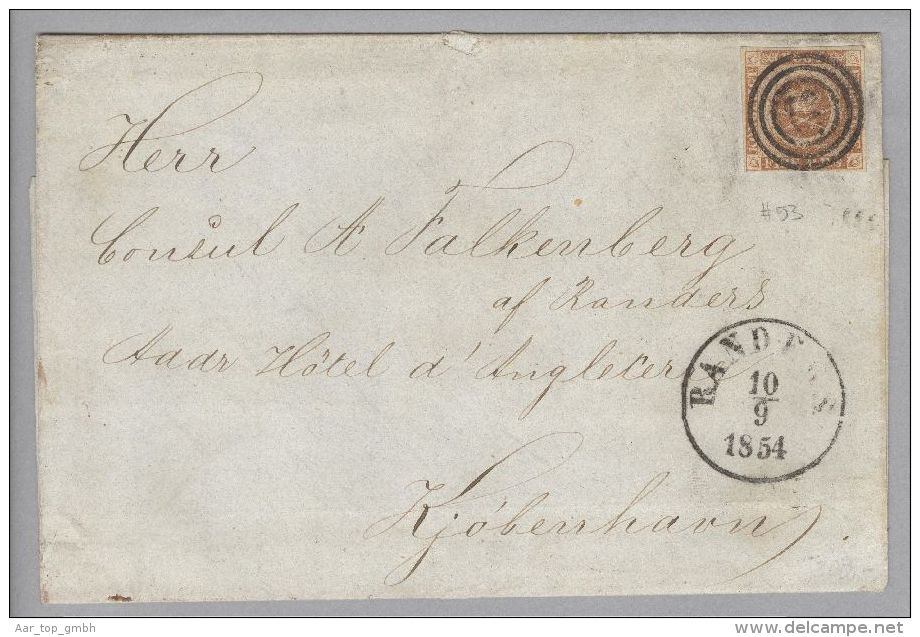 Herr
Consul A Falkenberg
af Randers
Aadr Hôtel d'Angleterre
Kjøbenhavn
#53
RANDERS
10
9
1854
Aar_top_gmbh
www.delcampe.net